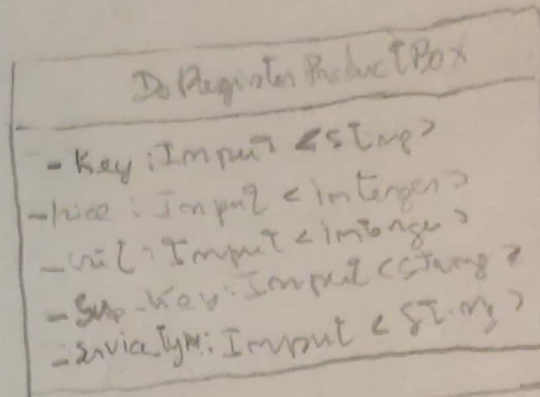 DoRegisterProductBox
- Key : Input <String>
- Price : Input <Interger>
- Unit : Input <Interger>
- Sup_Key : Input <String>
- Service_Type : Input <String>